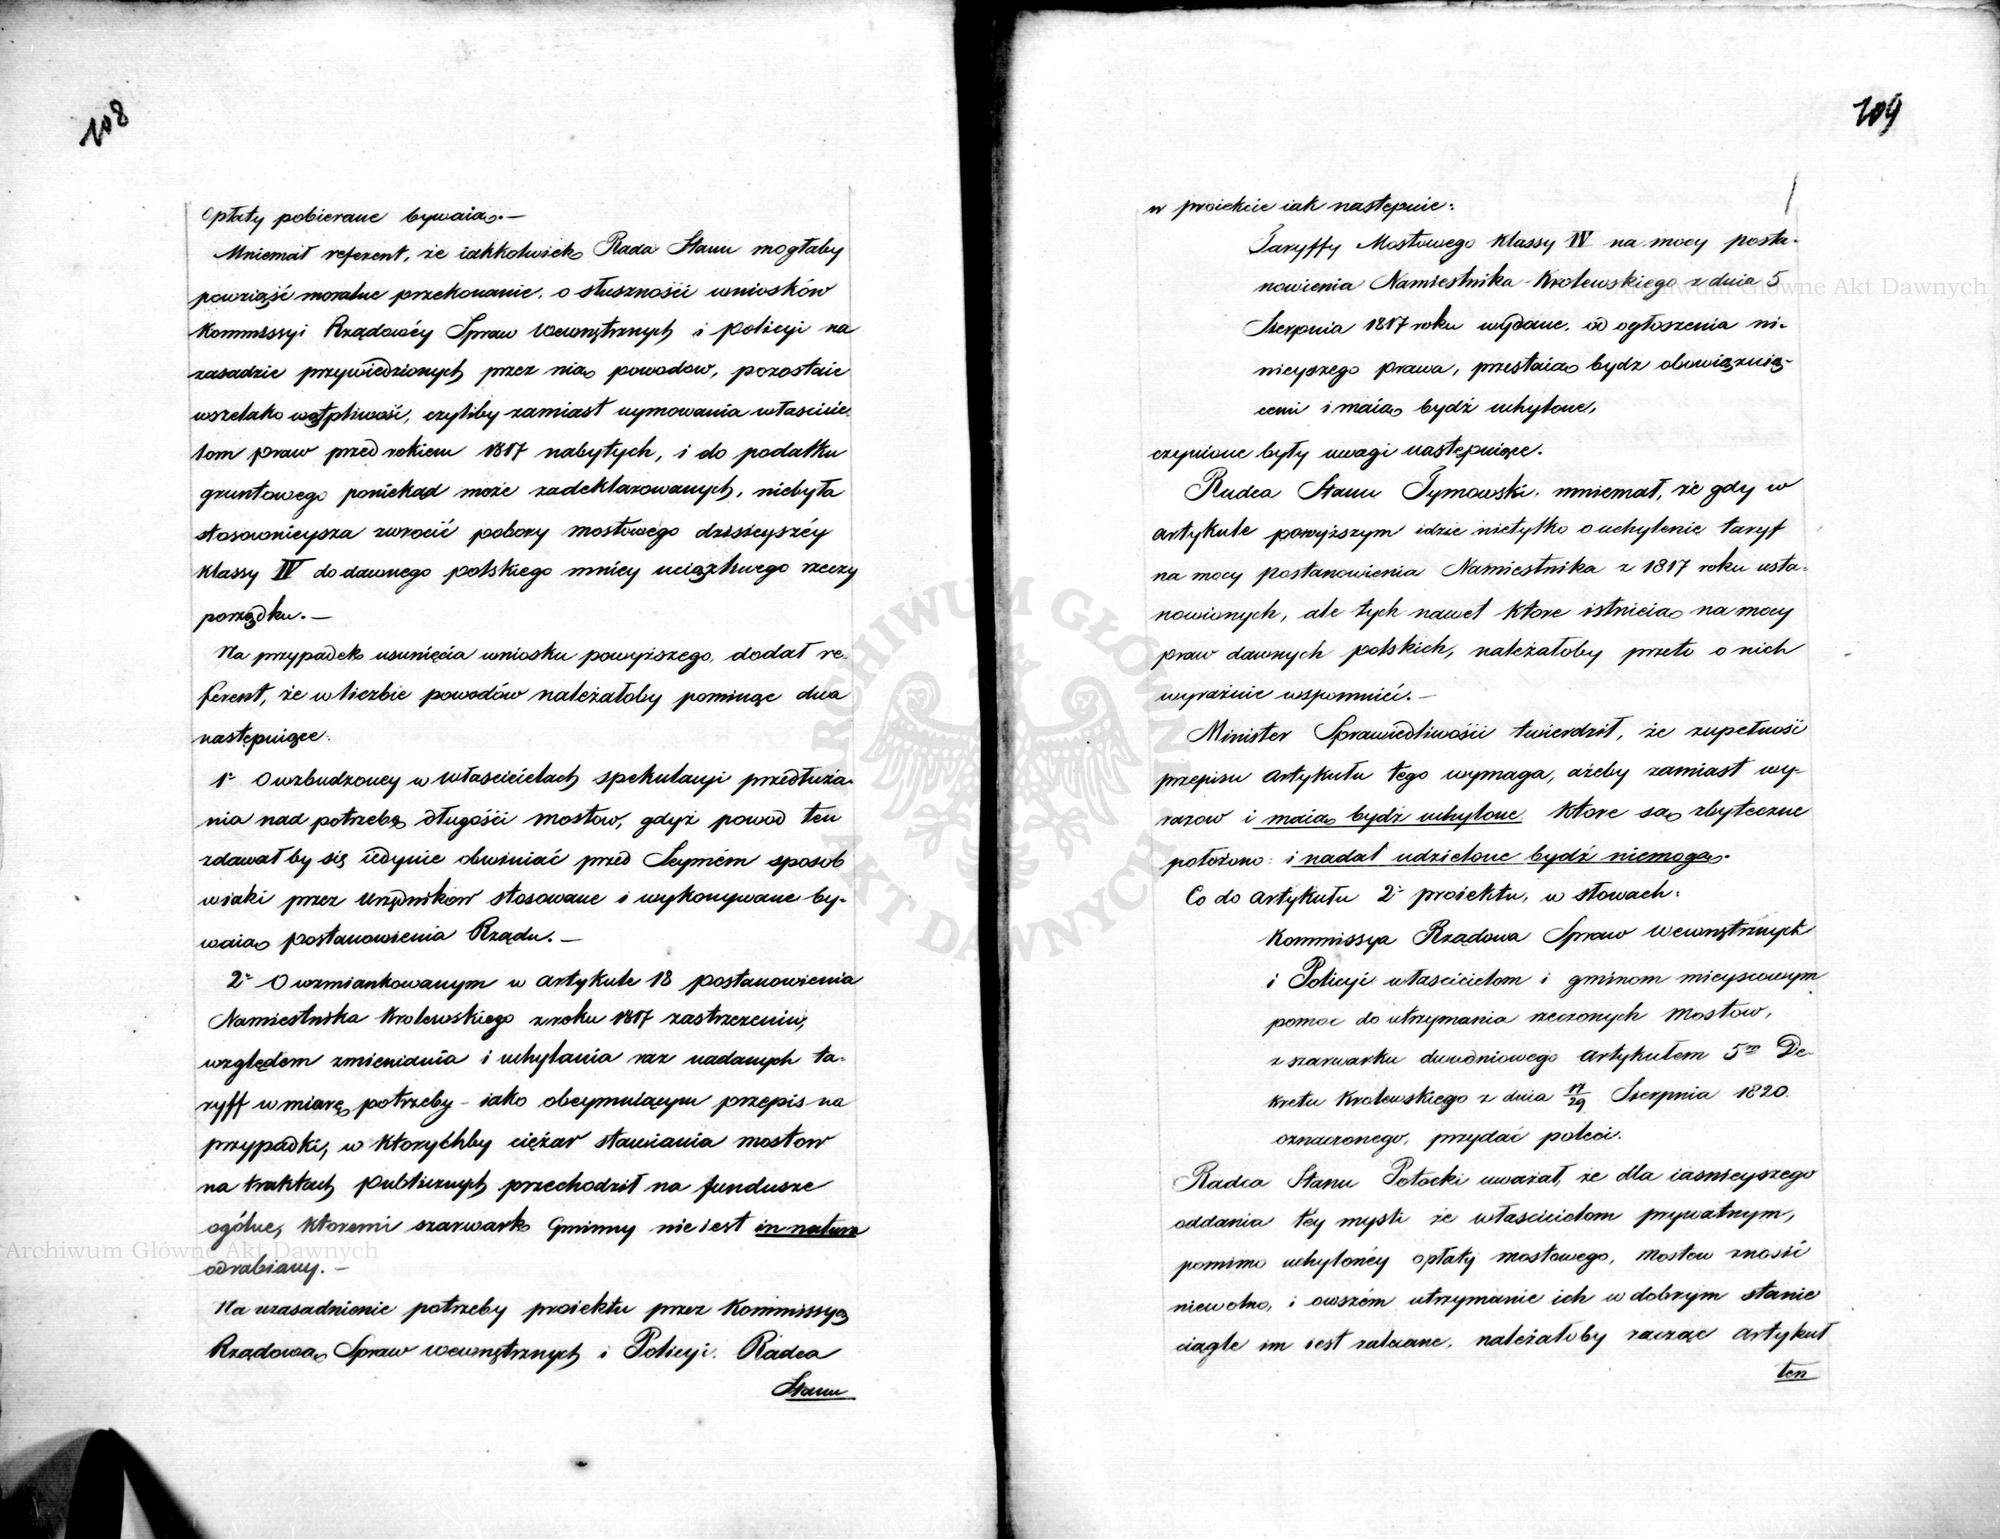 108
opłaty pobierane bywaią.—
Mniemał referent, że iakkolwiek Rada Stanu mogłaby
powziąść moralne przekonanie, o słuszności wniosków
Kommissyi Rządowéy Spraw Wewnętrznych i Policyi na
zasadzie przywiedzionych przez nią powodow, pozostaie
wszelako wątpliwość, czyliby zamiast uymowania właścicie-
lom praw przed rokiem 1817 nabytych, i do podatku
gruntowego poniekąd może zadeklarowanych, niebyła
stosownieysza zwrocić pobory mostowego dzisieyszéy
Klassy IV do dawnego polskiego mniey uciążliwego rzeczy
porządku.—
Na przypadek usunięcia wniosku powyższego, dodał re-
ferent, że w liczbie powodów należałoby pominąć dwa
następuiące:
1o O wzbudzoney w właścicielach spekulacyi przedłuża-
nia nad potrzebę długości mostow, gdyż powod ten
zdawałby się iedynie obwiniać przed Seymem sposob
w iaki przez Urzędnikow stosowane i wykonywane by-
waią postanowienia Rządu.—
2o O wzmiankowanym w artykule 18 postanowienia
Namiestnika Krolewskiego z roku 1817 zastrzeżeniu,
względem zmieniania i uchylania raz nadanych ta-
ryff w miarę potrzeby - iako obeymuiącym przepis na
przypadki, w ktorychby ciężar stawiania mostow
na traktach publicznych przechodził na fundusze
ogólne, ktoremi szarwark Gminny nie iest in natura
odrabiany.—
Na uzasadnienie potrzeby proiektu przez Kommissyą
Rządową Spraw wewnętrznych i Policyi. Radca
Stanu
109
w proiekcie iak następuie:
Taryffy Mostowego Klassy IV na mocy posta-
nowienia Namiestnika Krolewskiego z dnia 5
Sierpnia 1817 roku wydane, od ogłoszenia ni-
nieyszego prawa, przestaią bydz obowiązuią-
cemi i maią bydź uchylone,
czynione były uwagi następuiące.
Radca Stanu Tymowski, mniemał, że gdy w
artykule powyższym idzie nietylko o uchylenie taryf
na mocy postanowienia Namiestnika z 1817 roku usta-
nowionych, ale tych nawet ktore istnieią na mocy
praw dawnych polskich, należałoby przeto o nich
wyraźnie wspomnieć.—
Minister Sprawiedliwości twierdził, że zupełność
przepisu artykułu tego wymaga, ażeby zamiast wy-
razow i maią bydź uchylone, ktore są zbyteczne
położono: i nadal udzielone bydź niemogą.
Co do artykułu 2o proiektu, w słowach:
Kommissya Rządowa Spraw wewnętrznych
i Policyi właścicielom i gminom mieyscowym
pomoc do utrzymania rzeczonych mostow,
z szarwarku dwudniowego artykułem 5m De-
kretu Krolewskiego z dnia 17/29 Sierpnia 1820
oznaczonego, przydać poleci.
Radca Stanu Potocki uważał, że dla iaśnieyszego
oddania téy myśli że właścicielom prywatnym,
pomimo uchylonéy opłaty mostowego, mostow znosić
niewolno, i owszem utrzymanie ich w dobrym stanie
ciągle im iest zalecane, należałoby zacząć artykuł
ten
ARCHIWUM GŁÓWNE AKT DAWNYCH
Archiwum Główne Akt Dawnych
Archiwum Główne Akt Dawnych